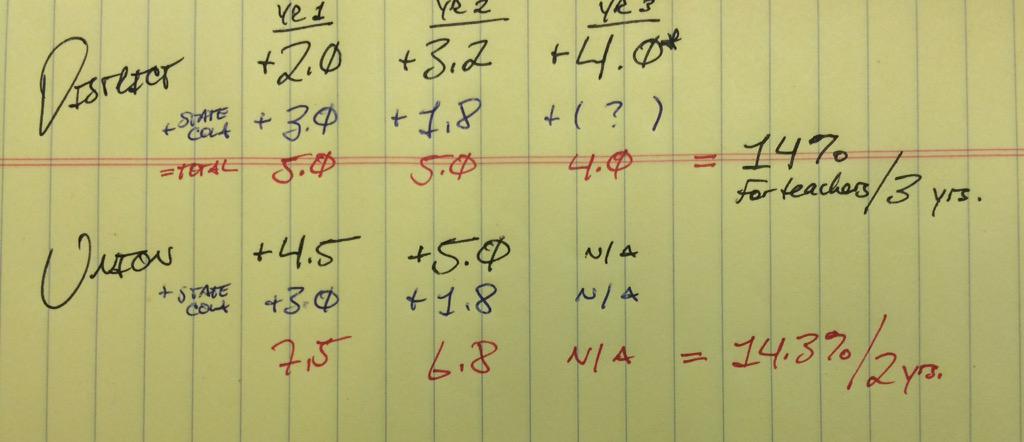 YR 1 YR 2 YR 3
DISTRICT +2.0 +3.2 +4.0*
+ STATE COLA +3.0 +1.8 + ( ? )
= TOTAL 5.0 5.0 4.0 = 14%
For teachers/3 yrs.
UNION +4.5 +5.0 N/A
+ STATE COLA +3.0 +1.8 N/A
7.5 6.8 N/A = 14.3%/2 yrs.